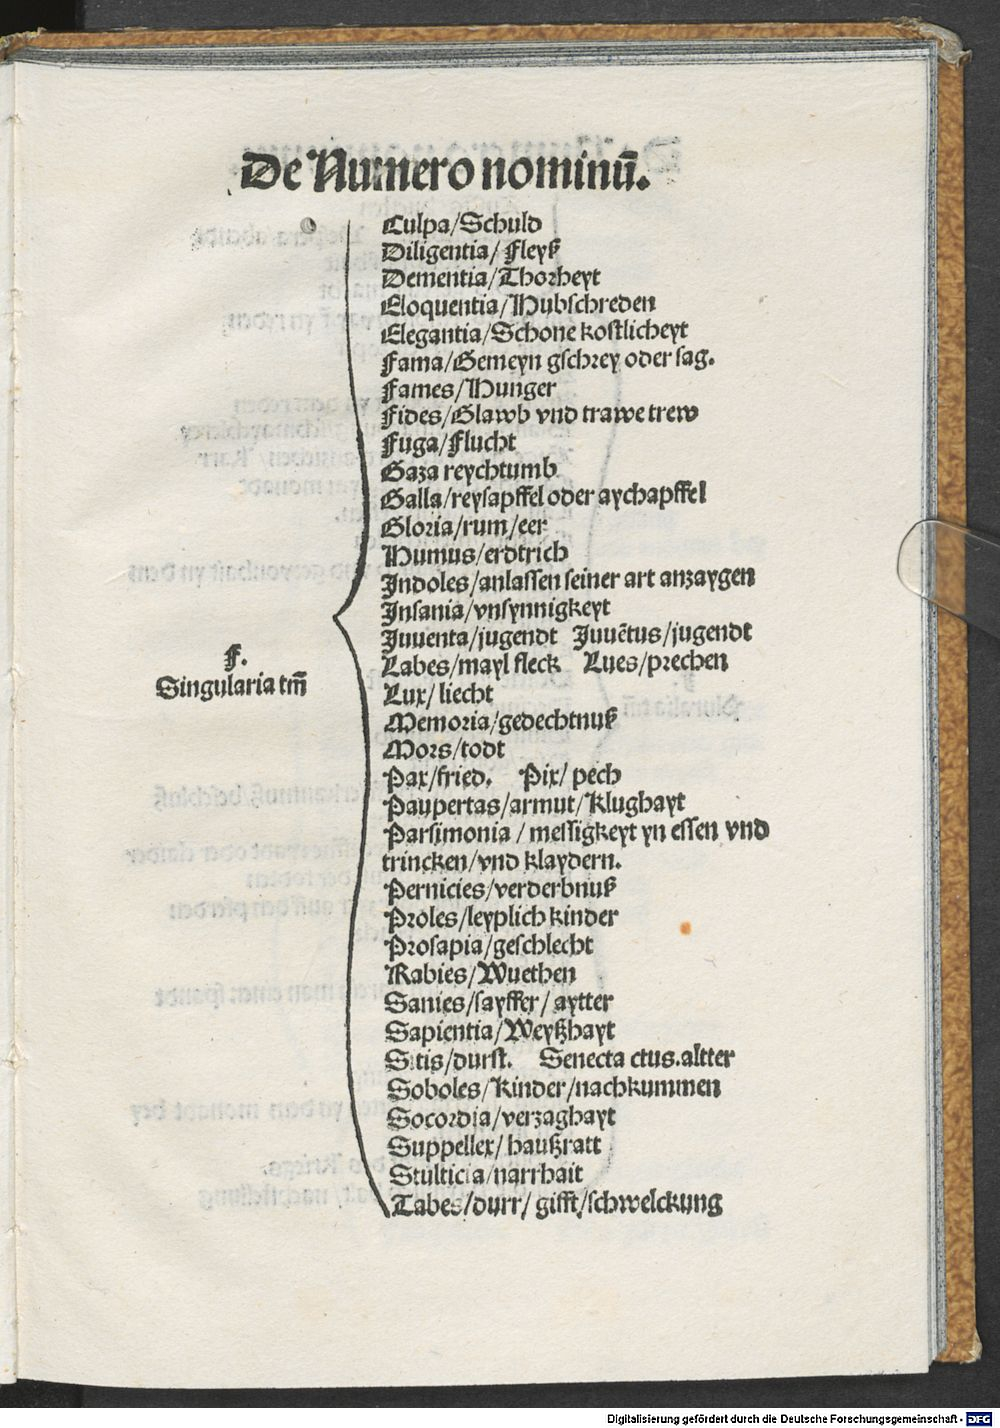 De Numero nominū.
Culpa/Schuld
Diligentia/Fleyß
Dementia/Thorheyt
Eloquentia/Hubschreden
Elegantia/Schone kostlicheyt
Fama/Gemeyn gschrey oder sag.
Fames/Hunger
Fides/Glawb vnd trawe trew
Fuga/Flucht
Gaza reychtumb
Galla/reysapffel oder aychapffel
Gloria/rum/eer
Humus/erdtrich
Indoles/anlassen seiner art anzaygen
Insania/vnsynnigkeyt
Juuenta/jugendt Juuētus/jugendt
Labes/mayl fleck Lues/prechen
F.
Singularia tm̄
Lux/liecht
Memoria/gedechtnuß
Mors/todt
Pax/fried. Pix/pech
Paupertas/armut/Klughayt
Parsimonia/messigkeyt yn essen vnd
trincken/vnd klaydern.
Pernicies/verderbnuß
Proles/leyplich kinder
Prosapia/geschlecht
Rabies/Wuethen
Sanies/sayffer/aytter
Sapientia/Weyßhayt
Sitis/durst. Senecta ctus.altter
Soboles/Kinder/nachkummen
Socordia/verzaghayt
Suppellex/haußratt
Stulticia/narrhait
Tabes/durr/gifft/schwelckung
Digitalisierung gefördert durch die Deutsche Forschungsgemeinschaft - DFG